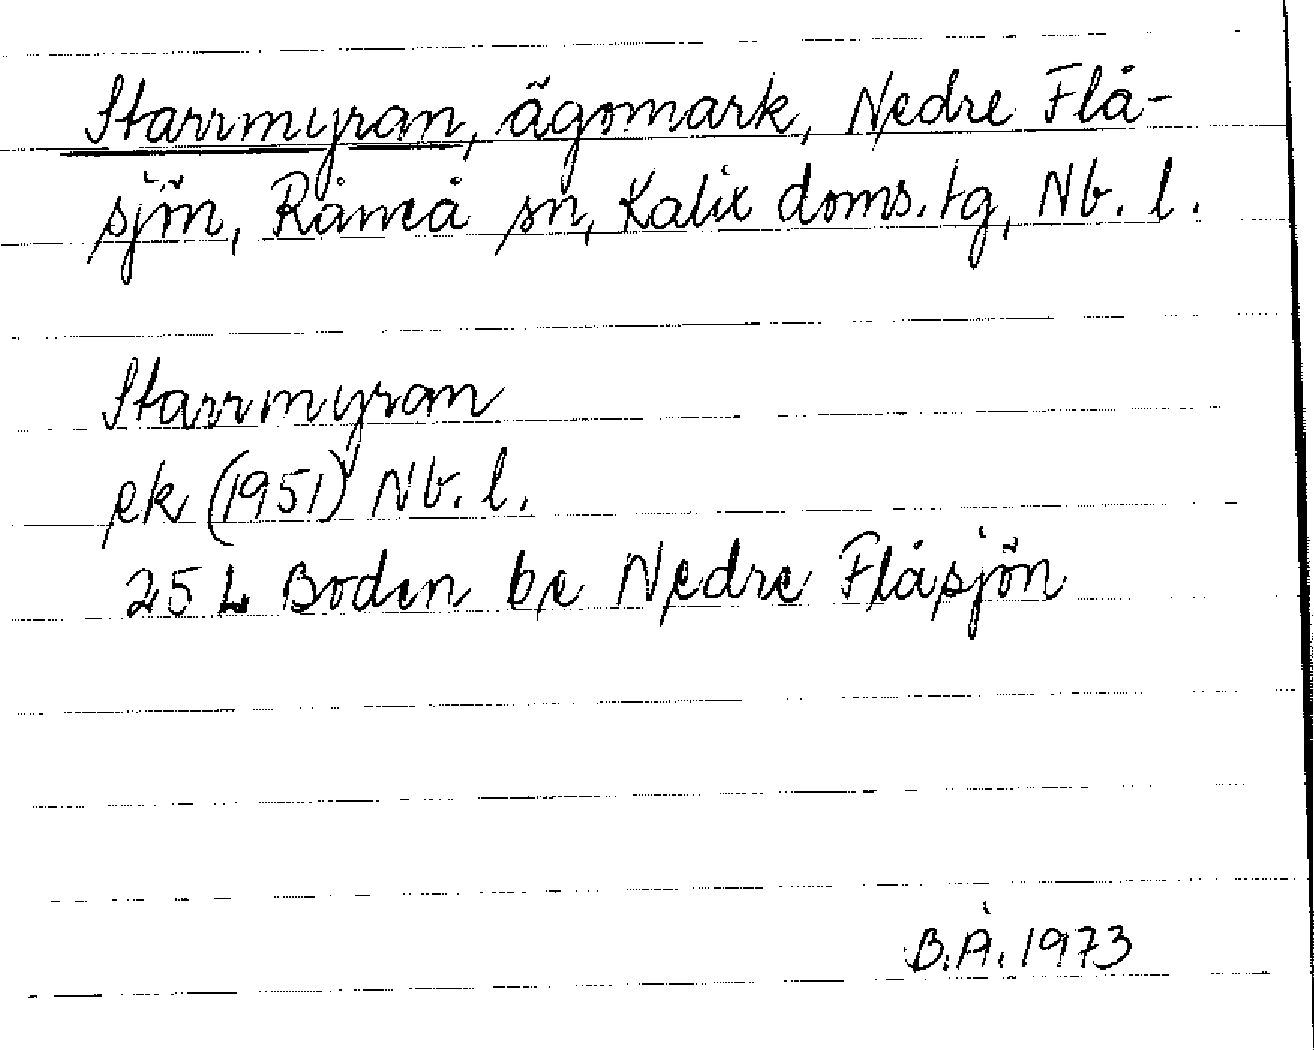 Starrmyran, ägomark, Nedre Flå-
sjön, Råneå sn, Kalix doms. tg, Nb. l.
Starrmyran
ek (1951) Nb. l.
25 L Boden be Nedre Flåsjön
B.Å. 1973